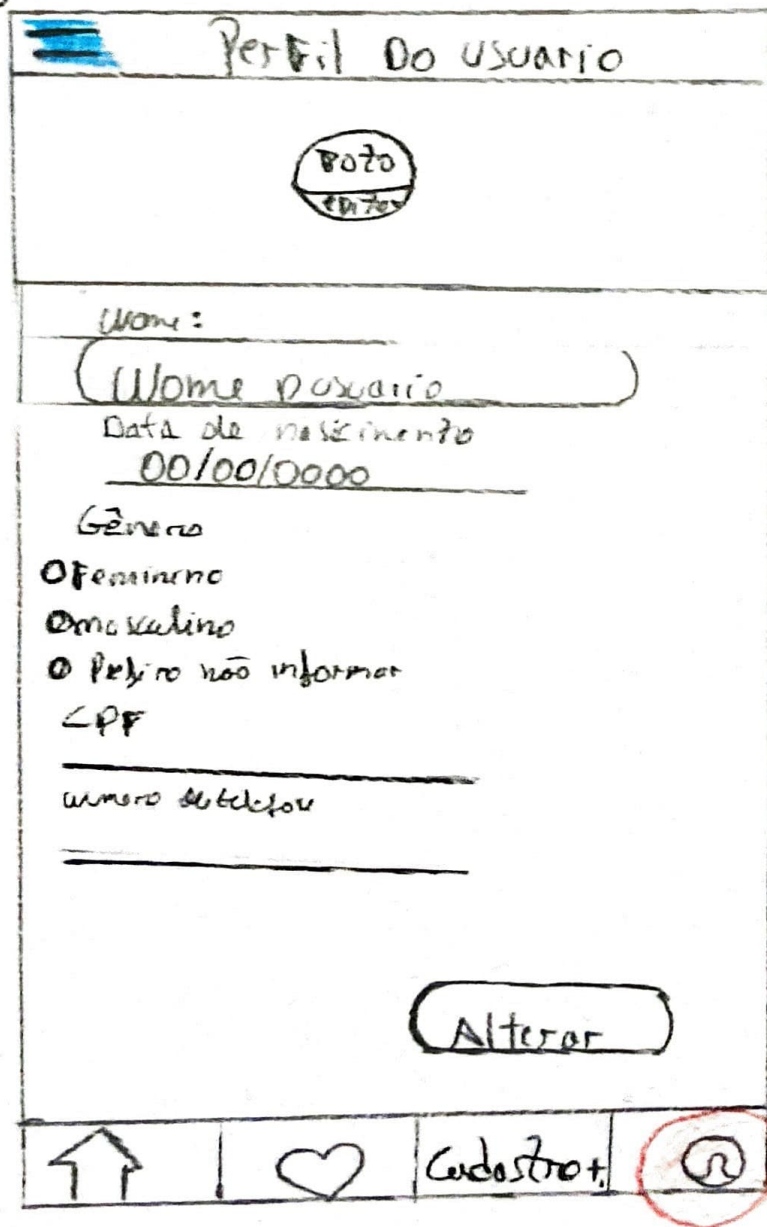 Perfil Do usuario
Foto
editar
Nome:
Nome
Data de nascimento
00/00/0000
Gênero
Feminino
masculino
Prefiro não informar
CPF
numero de telefone
Alterar
Cadastro+